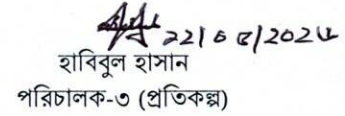 22/05/202
হাবিবুল হাসান
পরিচালক-৩ (প্রতিকল্প)